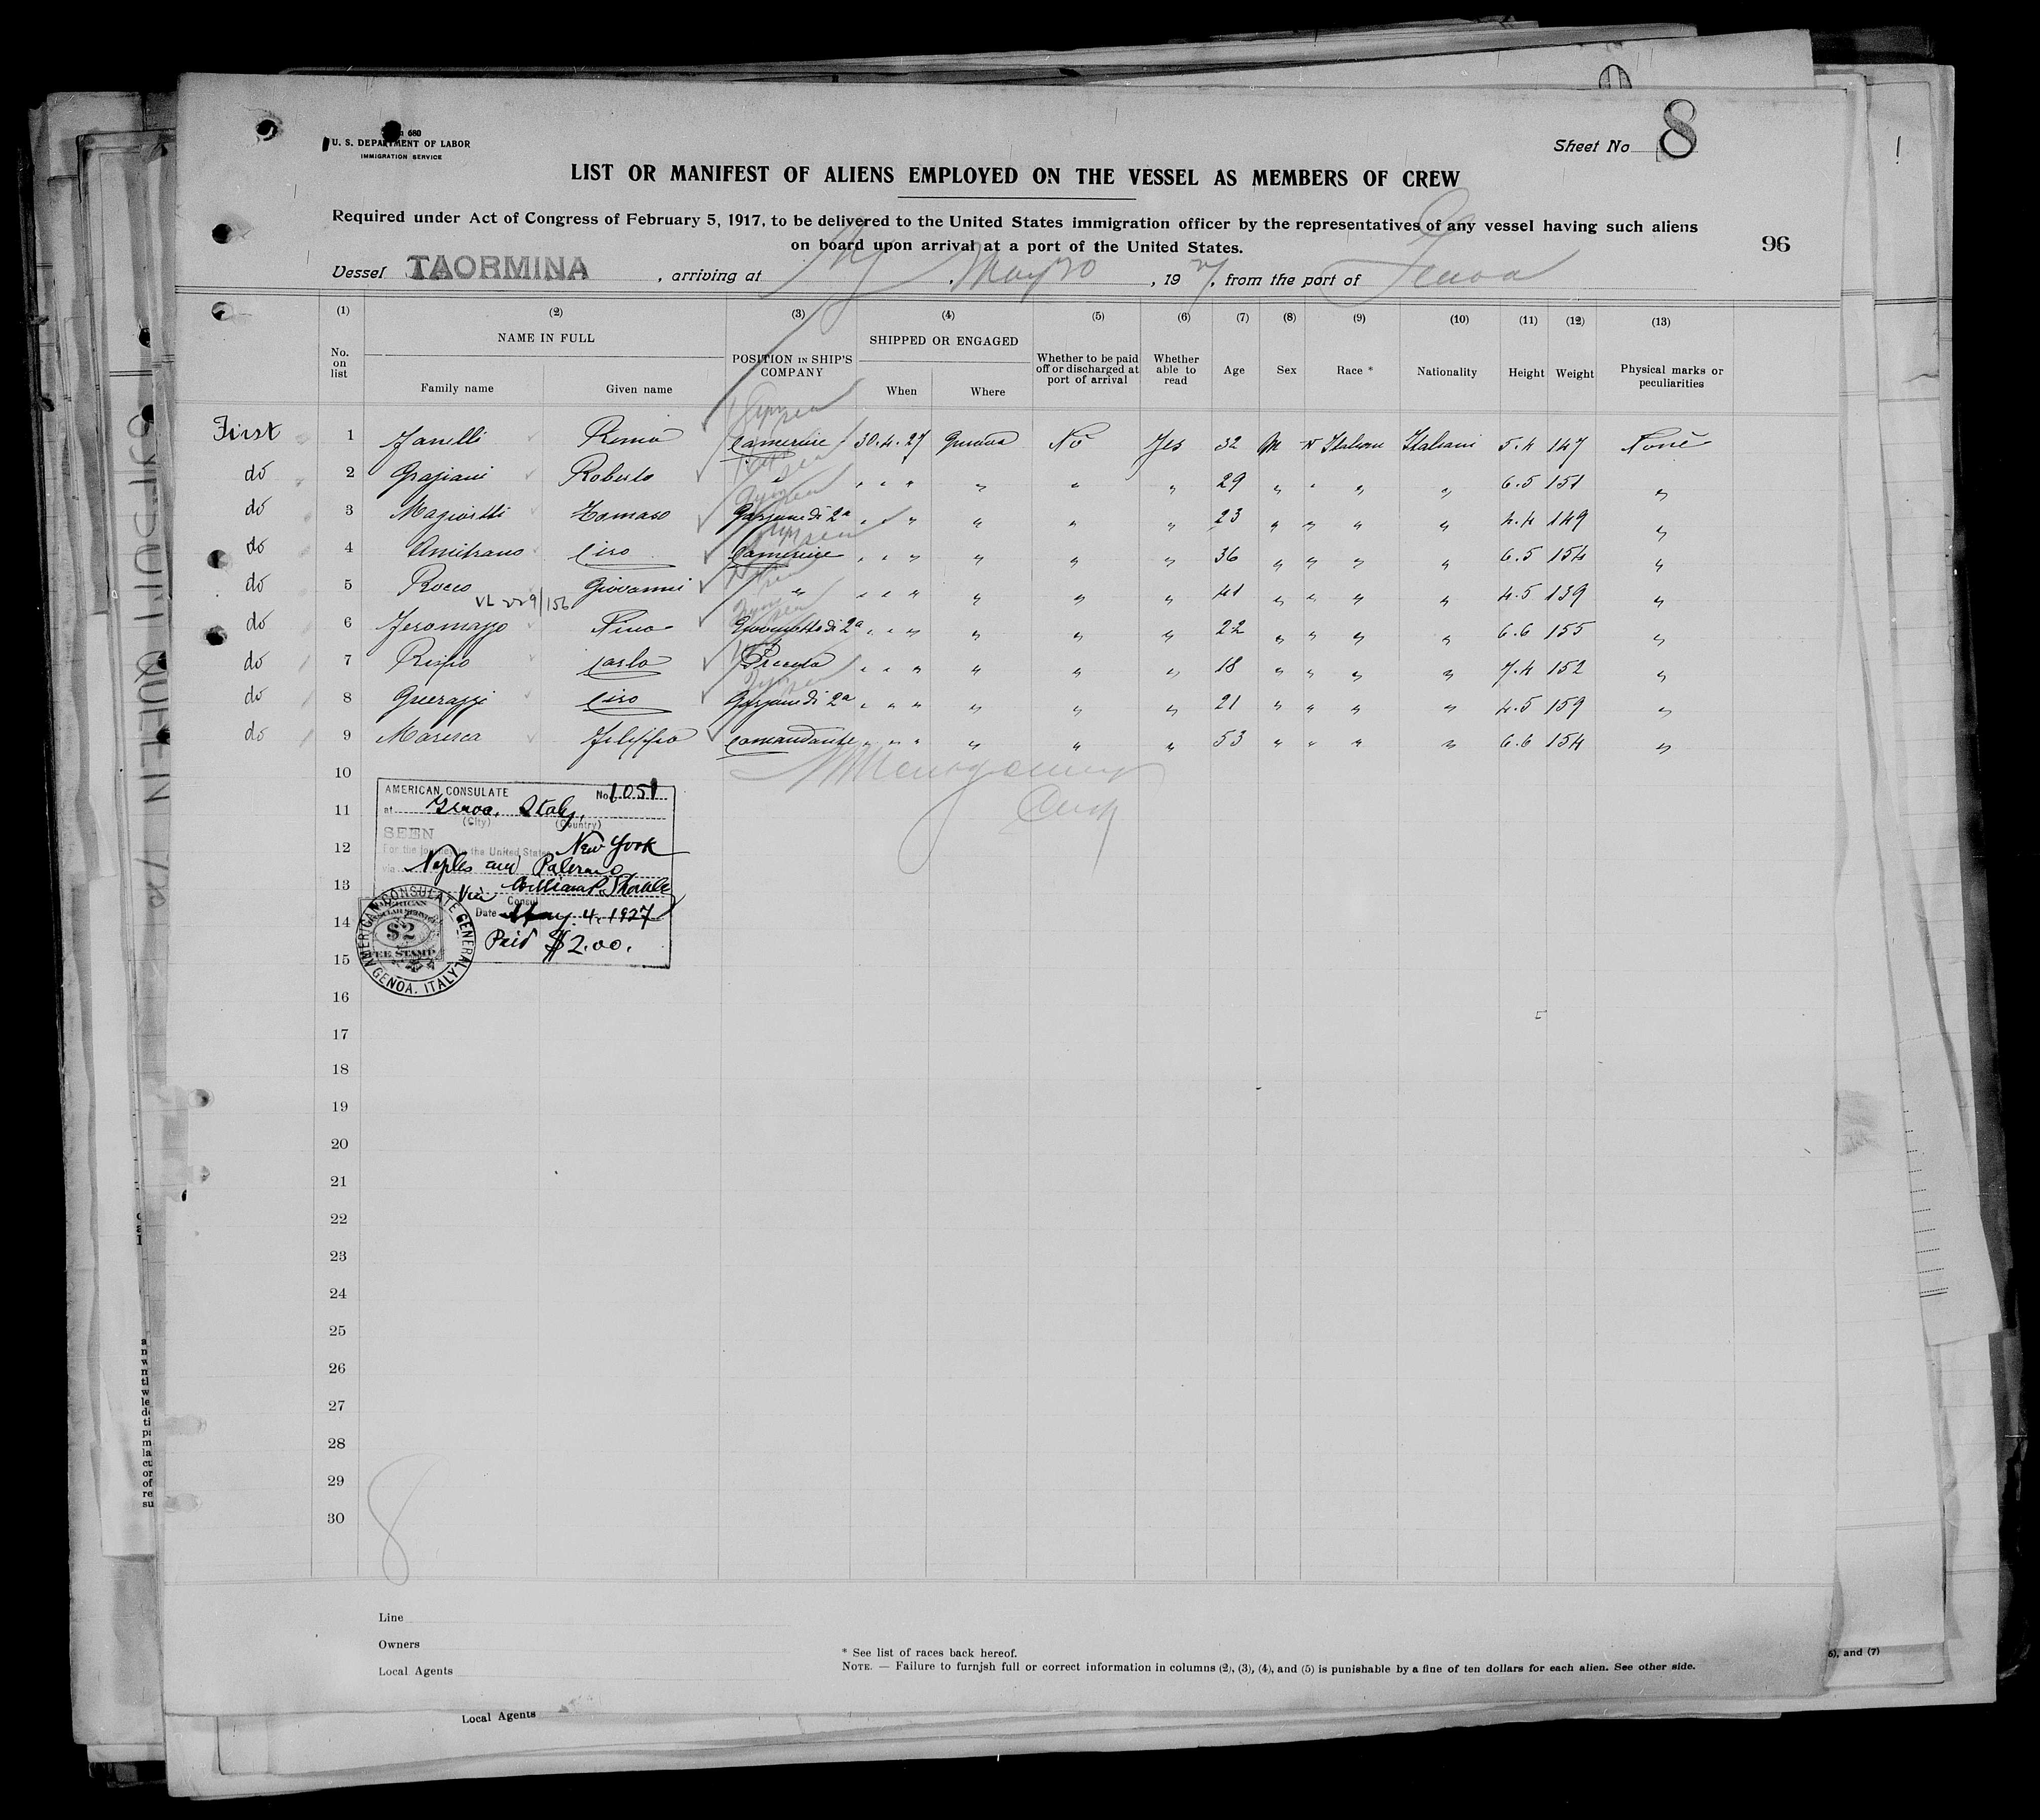 U. S. DEPARTMENT OF LABOR
IMMIGRATION SERVICE
Sheet No 8
LIST OR MANIFEST OF ALIENS EMPLOYED ON THE VESSEL AS MEMBERS OF CREW
Required under Act of Congress of February 5, 1917, to be delivered to the United States immigration officer by the representatives of any vessel having such aliens
on board upon arrival at a port of the United States.
96
Vessel TAORMINA, arriving at NY, May 20, 1927, from the port of Genoa
(1) (2) (3) (4) (5) (6) (7) (8) (9) (10) (11) (12) (13)
No. on list NAME IN FULL Family name Given name POSITION IN SHIP'S COMPANY SHIPPED OR ENGAGED When Where Whether to be paid off or discharged at port of arrival Whether able to read Age Sex Race * Nationality Height Weight Physical marks or peculiarities
First 1 Zanelli Remo Cameriere 30.4.27 Genova No Yes 32 M N Italian Italiani 5.4 147 None
do 2 Graziani Roberto " " " " " " " 29 " " " " 6.5 151 "
do 3 Tomaso Garzone di 2a " " " " " " 23 " " " " 4.4 149 "
do 4 Amitrano Ciro Cameriere " " " " " " 36 " " " " 6.5 154 "
do 5 Rocco Giovanni " " " " " " " 41 " " " " 4.5 139 "
VL 229/156
do 6 Nino 2a " " " " " " 22 " " " " 6.6 155 "
do 7 Carlo Piccolo " " " " " " 18 " " " " 7.4 152 "
do 8 Guerazzi Ciro Garzone di 2a " " " " " " 21 " " " " 4.5 159 "
do 9 Maresca Filippo Comandante " " " " " " 53 " " " " 6.6 154 "
10
11
12
13
14
15
AMERICAN CONSULATE No. 1051
at Genoa, Italy,
(City) (Country)
SEEN
For the journey to the United States New York
via Naples and Palermo
Vice Consul
Date May 4, 1927
Paid $2.00.
AMERICAN CONSULATE GENERAL
GENOA, ITALY
$2
FEE STAMP
16
17
18
19
20
21
22
23
24
25
26
27
28
29
30
8
Line
Owners
Local Agents
* See list of races back hereof.
NOTE. — Failure to furnish full or correct information in columns (2), (3), (4), and (5) is punishable by a fine of ten dollars for each alien. See other side.
6), and (7)
Local Agents